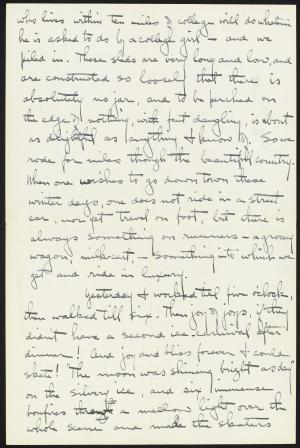 who lives within ten miles of college will do whatever
he is asked to do by a college girl – and we
piled in. These sleds are very long and low, and
are constructed so loosely that there is
absolutely no jar, and to be perched on
the edge of nothing, with feet dangling, is about
as delightful as anything I know of. So we
rode for miles though the beautiful country.
When one wishes to go down town these
winter days, one does not ride in a street
car, nor yet travel on foot, but there is
always something on runners – a grocery
wagon, milk cart – something into which we
get and ride in luxury.
Yesterday I worked till five o'clock,
then walked till six. Then joy of joys, if they
didn't have a second ice-carnival after
dinner! And joy and bliss forever, I could
skate! The moon was shining bright as day
on the silvery ice, and six immense
bonfires threw a mellow light over the
whole scene and made the skaters